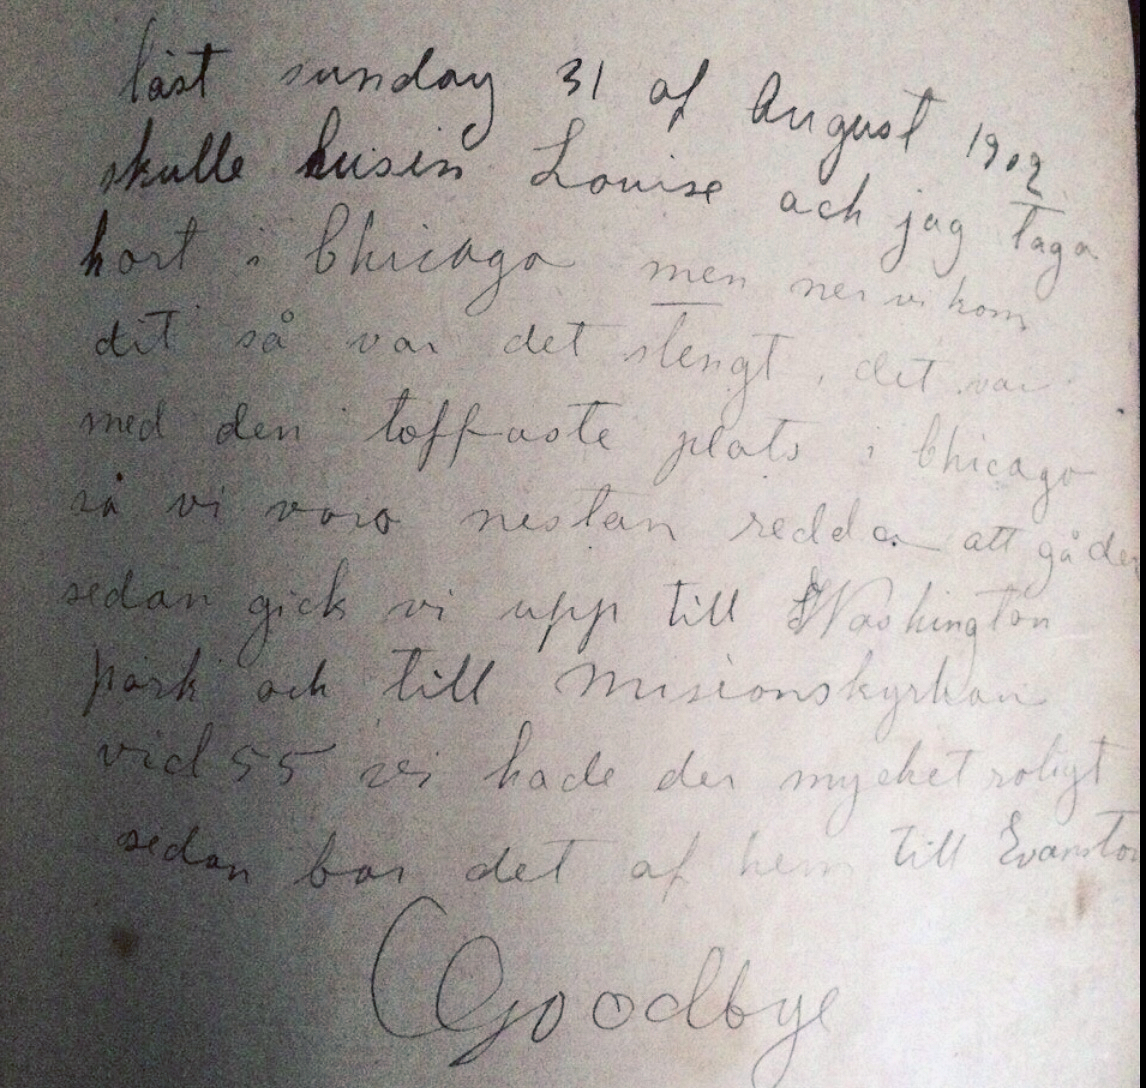 låst sunday 31 af August 1902
skulle kusin Louise och jag taga
kort i Chicago men ner vi kom
dit så var det stengt, det var
med den toffaste plats i Chicago
så vi voro nestan redda att gå der
sedan gick vi upp till Washington
park och till Misionskyrkan
vid 55 vi hade der mycket roligt
sedan bar det af hem till Evanston
Goodbye